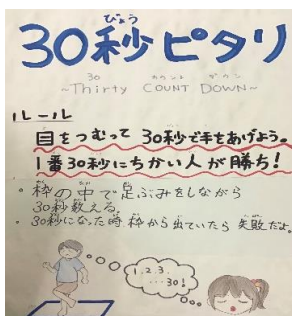 びょう
30秒ピタリ
30 カウント ダウン
~Thirty COUNT DOWN~
ルール
目をつむって 30秒で手をあげよう。
1番30秒にちかい人が勝ち!
・枠の中で足ぶみをしながら
30秒数える。
・30秒になった時 枠から出ていたら 失敗だよ。
1.2.3.
…30!